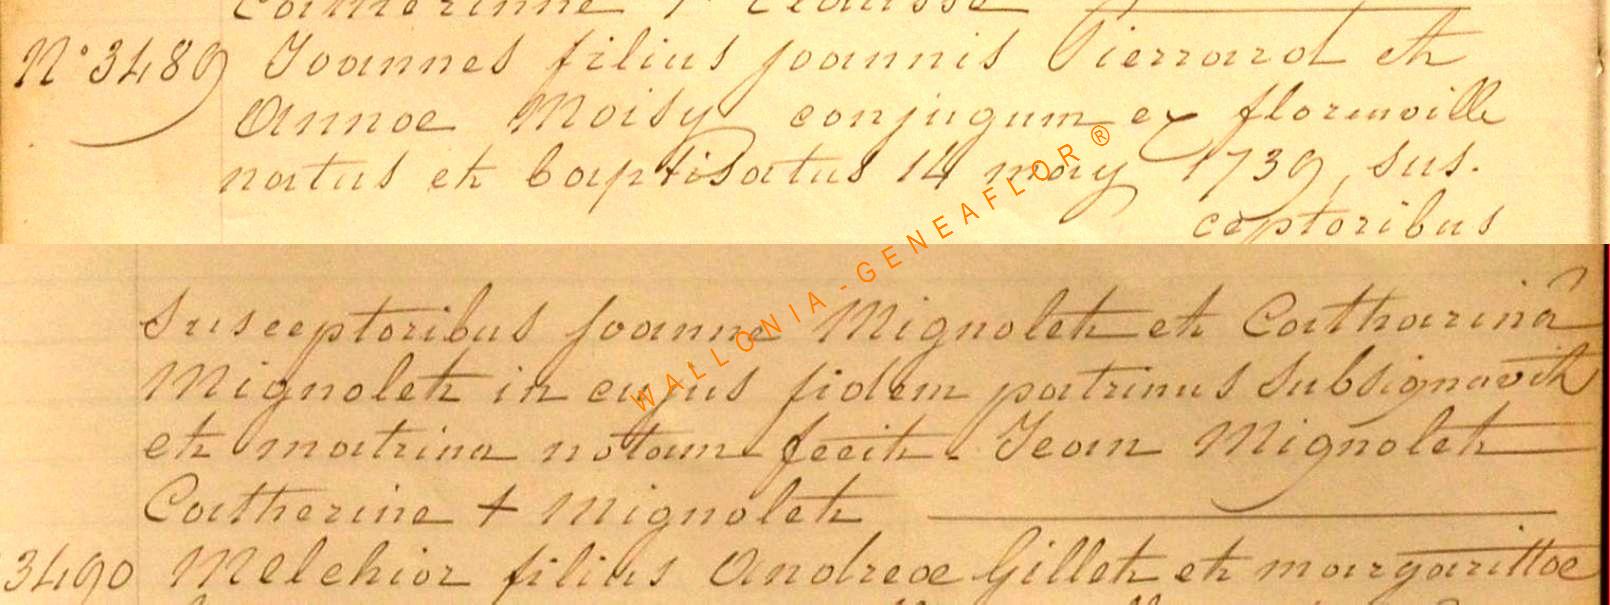 Catherinne + Clausse
N° 3489 Joannes filius joannis Pierrard et
Annae Noisy conjugum ex florenville
natus et baptisatus 14 may 1739, sus.
ceptoribus
susceptoribus joanne Mignolet et Catharina
Mignolet in cujus fidem patrinus subsignavit
et matrina notam fecit. Jean Mignolet
Catherine + Mignolet
3490 Melchior filius Andreae Gillet et margarittae
WALLONIA-GENEAFLOR®